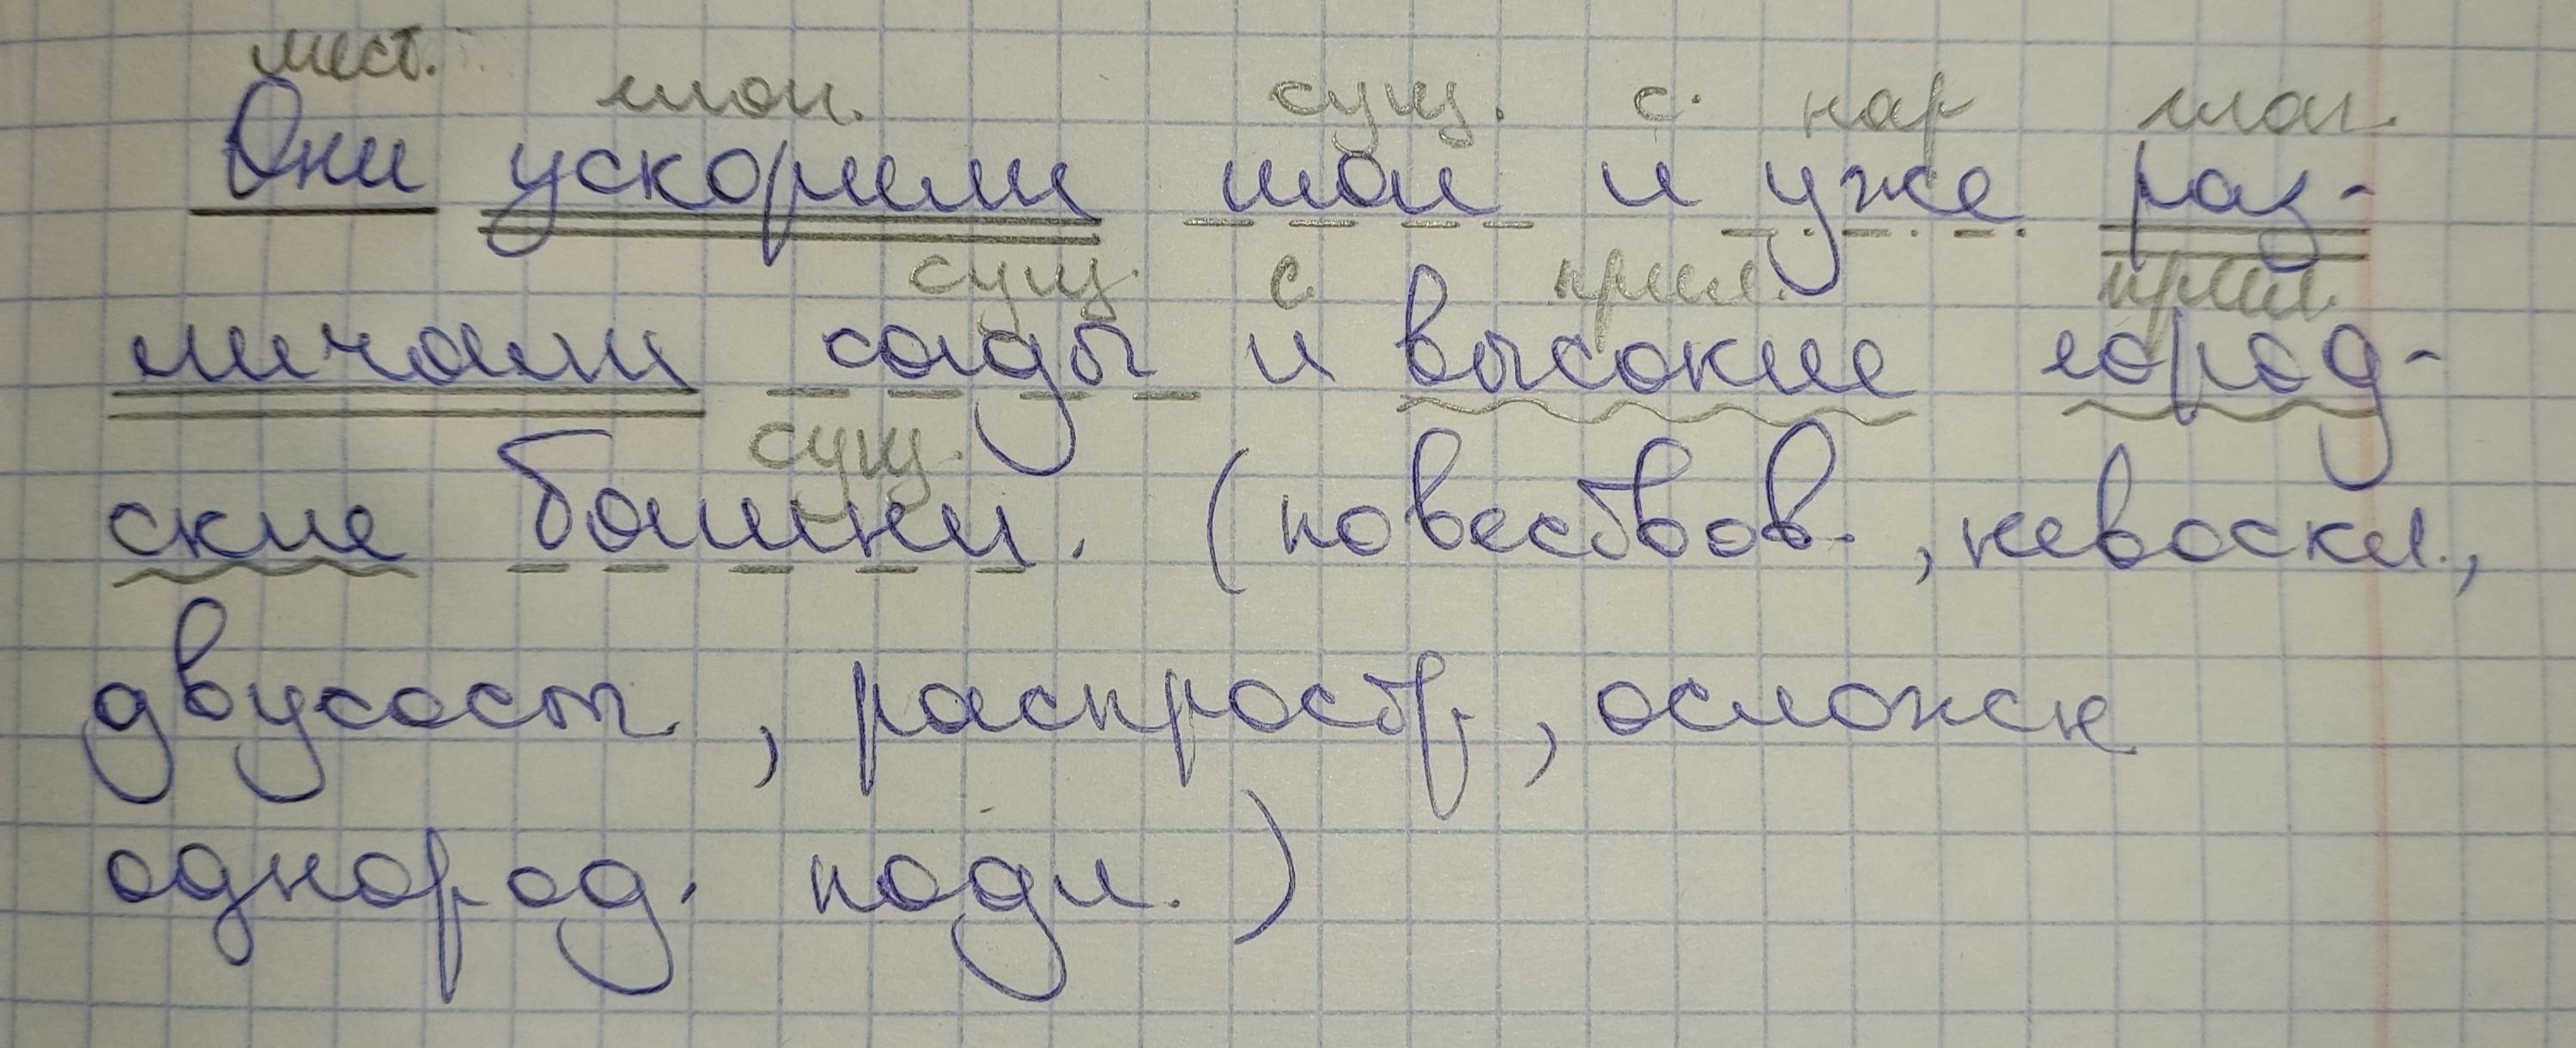 мест. глаг. сущ. с. нар глаг.
Они ускорили шаг и уже раз-
сущ. с. прил. прил.
личали сады и высокие город-
сущ.
ские башни. (повествов., невоскл.,
двусост., распростр., осложнен
однород. подл.)